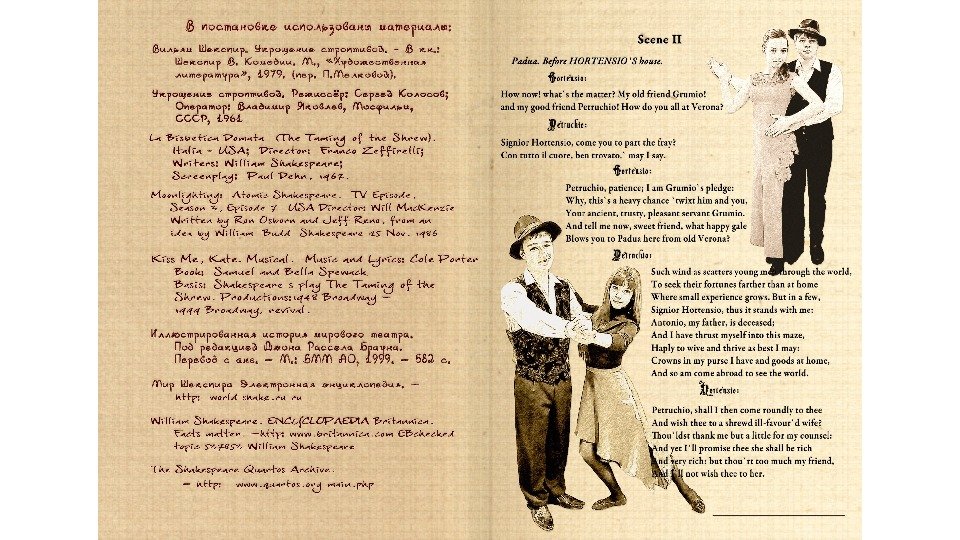 В постановке использованы материалы:
Вильям Шекспир. Укрощение строптивой. - В кн.:
Шекспир В. Комедии. М., «Художественная
литература», 1979. (пер. П.Мелковой).
Укрощение строптивой. Режиссёр: Сергей Колосов;
Оператор: Владимир Яковлев, Мосфильм,
СССР, 1961
La Bisbetica Domata (The Taming of the Shrew).
Italia - USA; Director: Franco Zeffirelli;
Writers: William Shakespeare;
Screenplay: Paul Dehn. 1967.
Moonlighting: Atomic Shakespeare. TV Episode,
Season 3, Episode 7 USA Director: Will MacKenzie
Written by Ron Osborn and Jeff Reno, from an
idea by William Budd Shakespeare 25 Nov. 1986
Kiss Me, Kate. Musical. Music and Lyrics: Cole Porter
Book: Samuel and Bella Spewack
Basis: Shakespeare s play The Taming of the
Shrew. Productions:1948 Broadway -
1999 Broadway, revival.
Иллюстрированная история мирового театра.
Под редакцией Джона Рассела Брауна.
Перевод с анг. – М.: БММ АО, 1999. – 582 с.
Мир Шекспира Электронная энциклопедия. –
http: world shake.ru ru
William Shakespeare. ENCYCLOPÆDIA Britannica.
Facts matter. –http: www.britannica.com EBchecked
topic 537853 William Shakespeare
The Shakespeare Quartos Archive.
– http: www.quartos.org main.php
Scene II
Padua. Before HORTENSIO'S house.
Hortensio:
How now! what`s the matter? My old friend Grumio!
and my good friend Petruchio! How do you all at Verona?
Petruchio:
Signior Hortensio, come you to part the fray?
Con tutto il cuore, ben trovato,` may I say.
Hortensio:
Petruchio, patience; I am Grumio`s pledge:
Why, this`s a heavy chance `twixt him and you,
Your ancient, trusty, pleasant servant Grumio.
And tell me now, sweet friend, what happy gale
Blows you to Padua here from old Verona?
Petruchio:
Such wind as scatters young men through the world,
To seek their fortunes farther than at home
Where small experience grows. But in a few,
Signior Hortensio, thus it stands with me:
Antonio, my father, is deceased;
And I have thrust myself into this maze,
Haply to wive and thrive as best I may:
Crowns in my purse I have and goods at home,
And so am come abroad to see the world.
Hortensio:
Petruchio, shall I then come roundly to thee
And wish thee to a shrewd ill-favour`d wife?
Thou`ldst thank me but a little for my counsel:
And yet I`ll promise thee she shall be rich
And very rich: but thou`rt too much my friend,
And I`ll not wish thee to her.